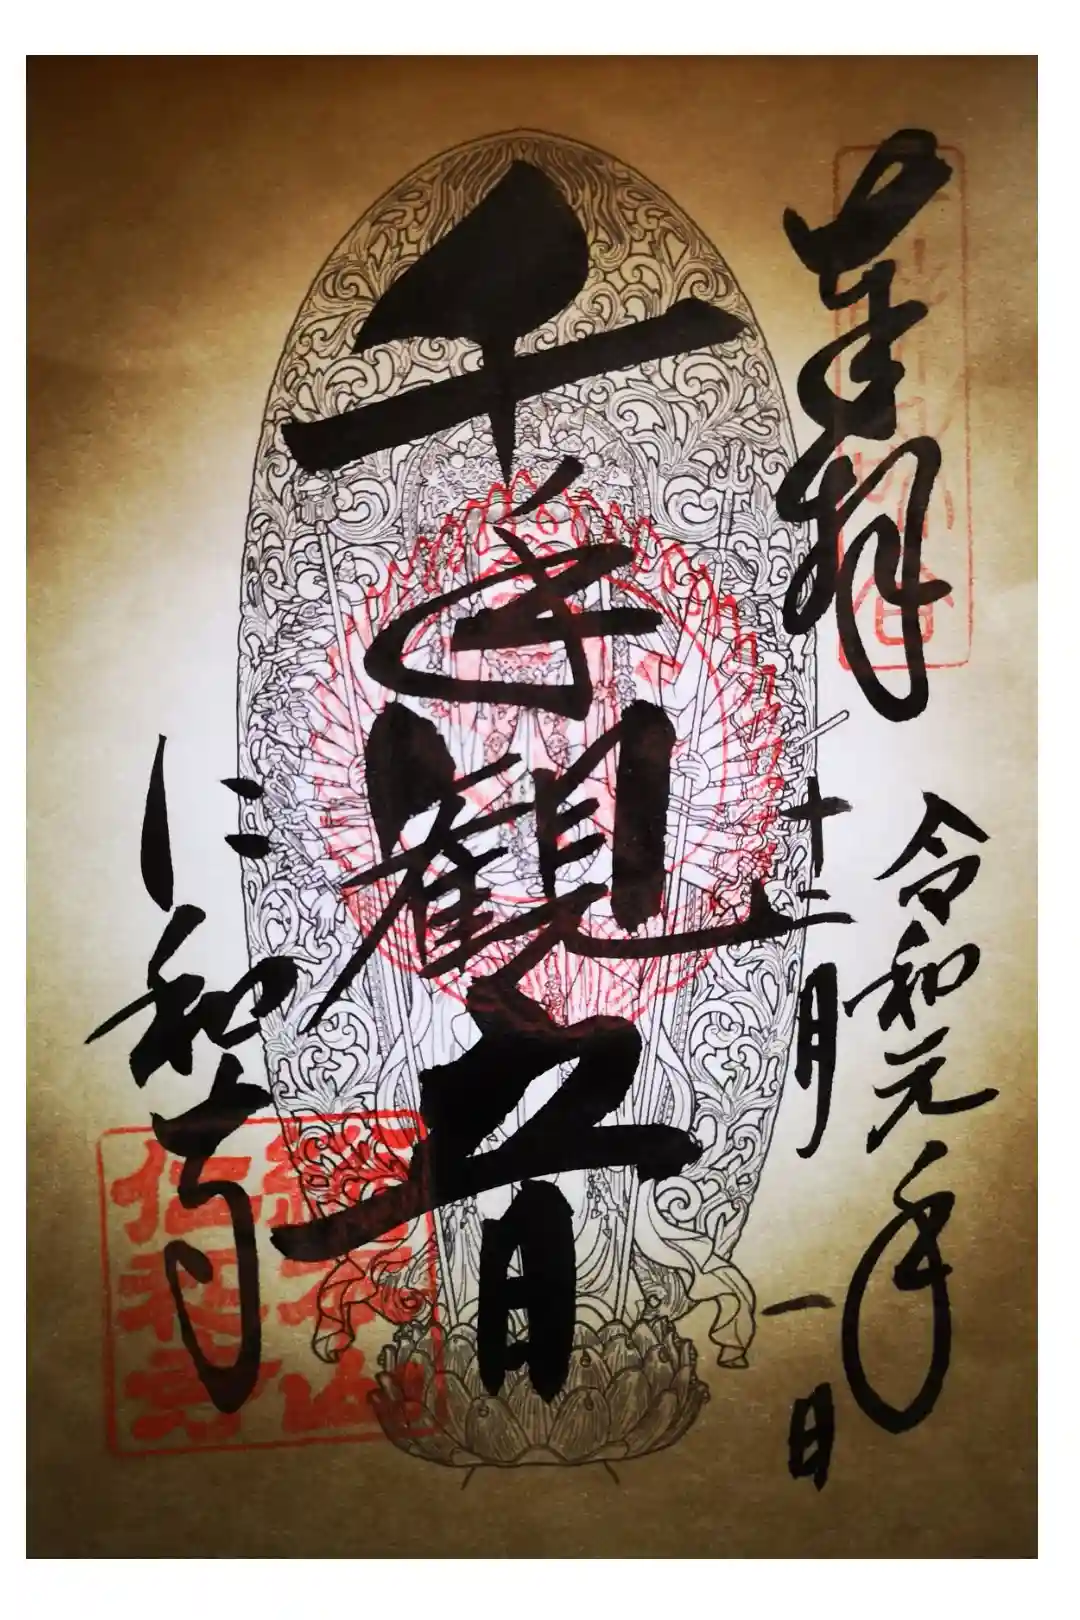 奉拝
令和元年
十二月
一日
千手観音
仁和寺
総本山
仁和寺